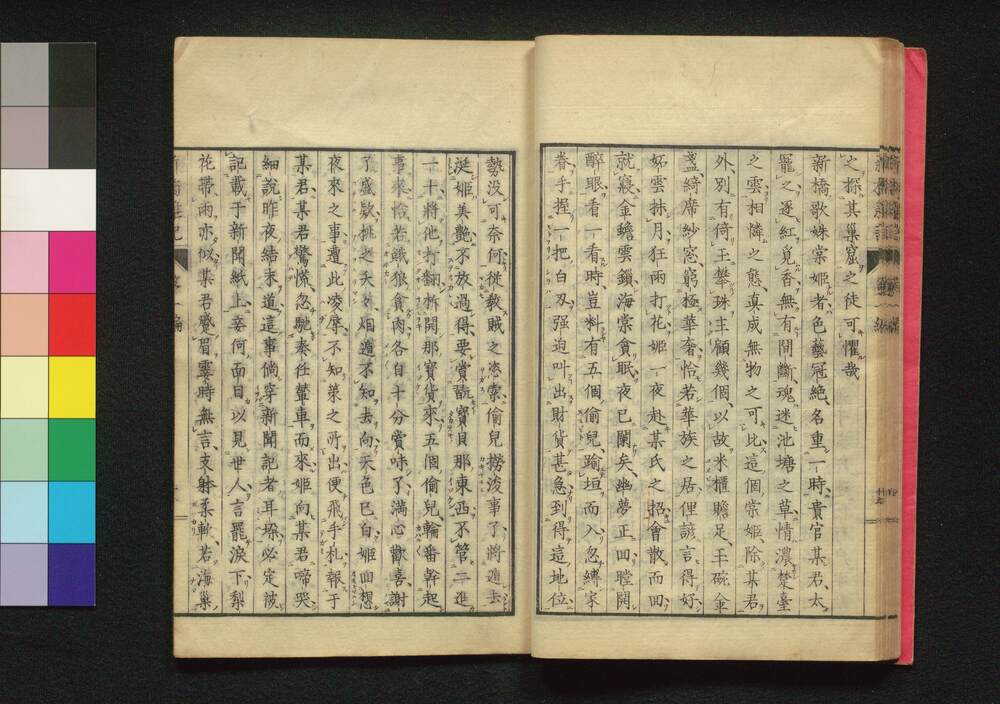 之探其巢窟之徒可懼哉
新橋歌姝棠姬者色藝冠絶名重一時貴官某君太
寵之逐紅覓香無有間斷魂迷池塘之草情濃楚臺
之雲相憐之態真成無物之可比這個棠姬除某君
外別有倚玉攀珠主顧幾個以故米櫃贍足玉碗金
盞綺席紗窓窮極華奢恰若華族之居俚諺言得好
妬雲抹月狂雨打花姬一夜赴某氏之招會散而回
就寢金蟾雲鎖海棠貪眠夜已闌矣幽夢正回瞠開
醉眼看一看時豈料有五個偷兒踰垣而入忽縛家
眷手握一把白刃强迫叶出財貨甚急到得這地位
勢没可奈何從教賊之恣索偷兒撈浚事了將遁去
涎姬美艷不放過得要賞翫寶貝那東西不管二進
一十將他打翻拆開那寶貨來五個偷兒輪番幹起
事來恰若餓狼貪肉各自十分賞味了滿心歡喜謝
了盛款挑之夭夭烟遁不知去向天色已白姬回想
夜來之事遭此凌辱不知策之所出便飛手札報于
某君某君驚慌忽馳奏任輦車而來姬向某君啼哭
細說昨夜結束道這事倘穿新聞記者耳垜必定被
記載于新聞紙上妾何面目以見世人言罷淚下梨
花帶雨亦似某君蹙眉霎時無言支躰柔軟若海棠